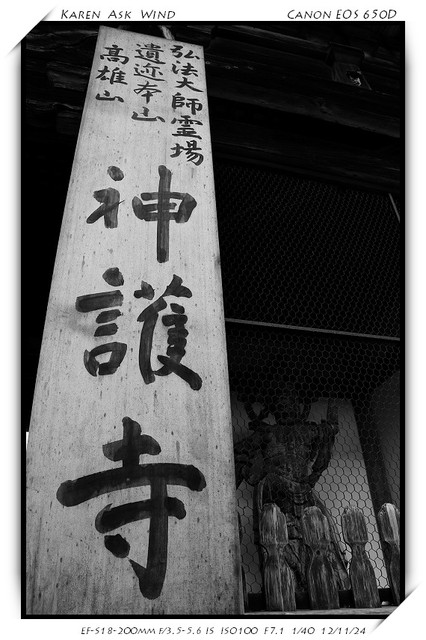 Karen Ask Wind
Canon EOS 650D
弘法大師霊場
遺迹本山
高雄山
神護寺
EF-S18-200mm f/3.5-5.6 IS ISO100 F7.1 1/40 12/11/24